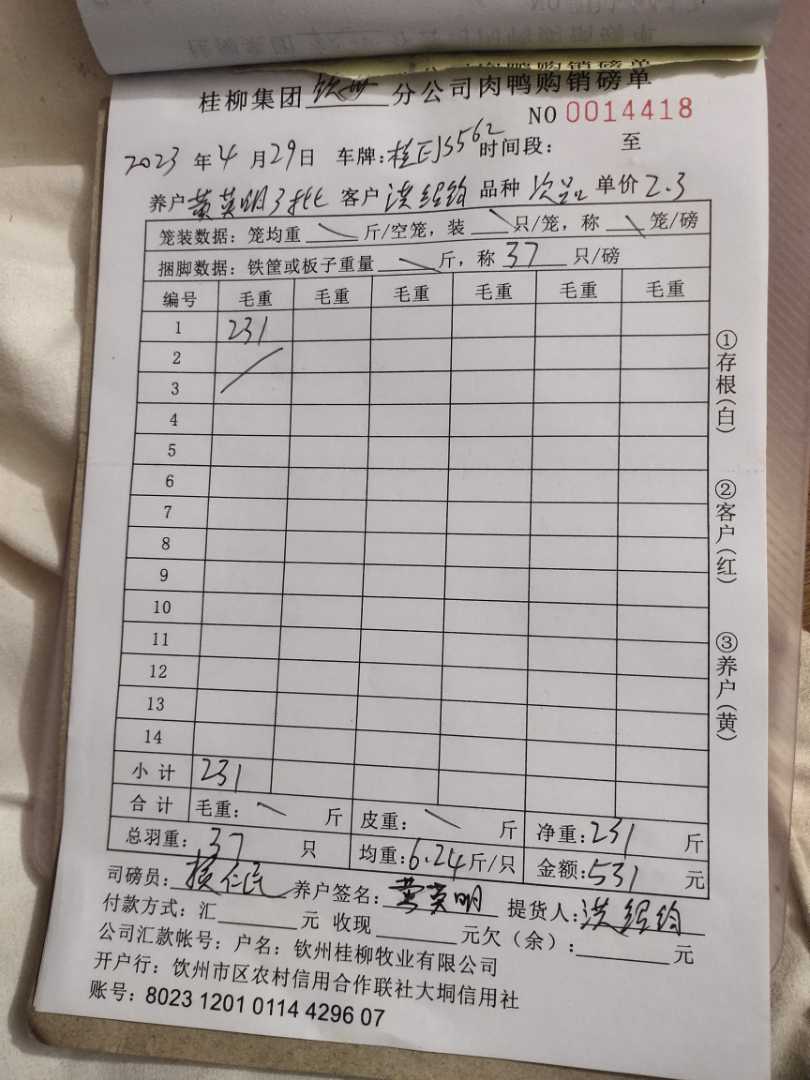 桂柳集团 钦州 分公司肉鸭购销磅单
NO 0014418
2023 年 4 月 29 日 车牌: 时间段: 至
养户 黄英明3批 客户 洪经钧 品种 次品 单价 2.3
笼装数据: 笼均重 \ 斤/空笼, 装 \ 只/笼, 称 \ 笼/磅
捆脚数据: 铁筐或板子重量 \ 斤, 称 37 只/磅
编号 毛重 毛重 毛重 毛重 毛重 毛重
1 231
2
3
4
5
6
7
8
9
10
11
12
13
14
小计 231
合计 毛重: \ 斤 皮重: \ 斤 净重: 231 斤
总羽重: 37 只 均重: 6.24 斤/只 金额: 531 元
司磅员: 养户签名: 黄英明 提货人: 洪经钧
付款方式: 汇 元 收现 元欠(余): 元
公司汇款帐号: 户名: 钦州桂柳牧业有限公司
开户行: 钦州市区农村信用合作联社大垌信用社
账号: 8023 1201 0114 4296 07
①存根(白)
②客户(红)
③养户(黄)